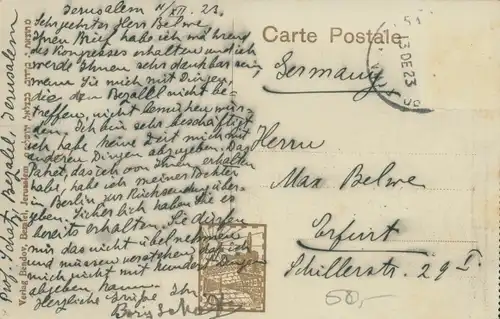 Jerusalem 11/XII. 23.
Sehr geehrter Herr Belwe,
Ihren Brief habe ich während
des Kongresses erhalten und ich
werde Ihnen sehr dankbar sein,
wenn Sie mich mit Dingen,
die den Bezalel nicht be-
treffen, nicht bemühen wür-
den. Ich bin sehr beschäftigt
ich habe keine Zeit mich mit
anderen Dingen abzugeben. Das
Paket, das ich von Ihnen erhalten
habe, habe ich meiner Tochter
in Berlin zur Rücksendung überge-
geben. Sicherlich haben Sie es
bereits erhalten. Sie dürfen
mir das nicht übelnehmen
und müssen verstehen dass ich
mich nicht mit hundert Dingen
abgeben kann.
Herzliche Grüße Ihr
Boris Schatz
Prof. Schatz, Bezalel, Jerusalem
Verlag Bendov, Bezalel, Jerusalem
Carte Postale
13 DE 23
Germany
Herrn
Max Belwe
Erfurt
Schillerstr. 29 I.
50,-